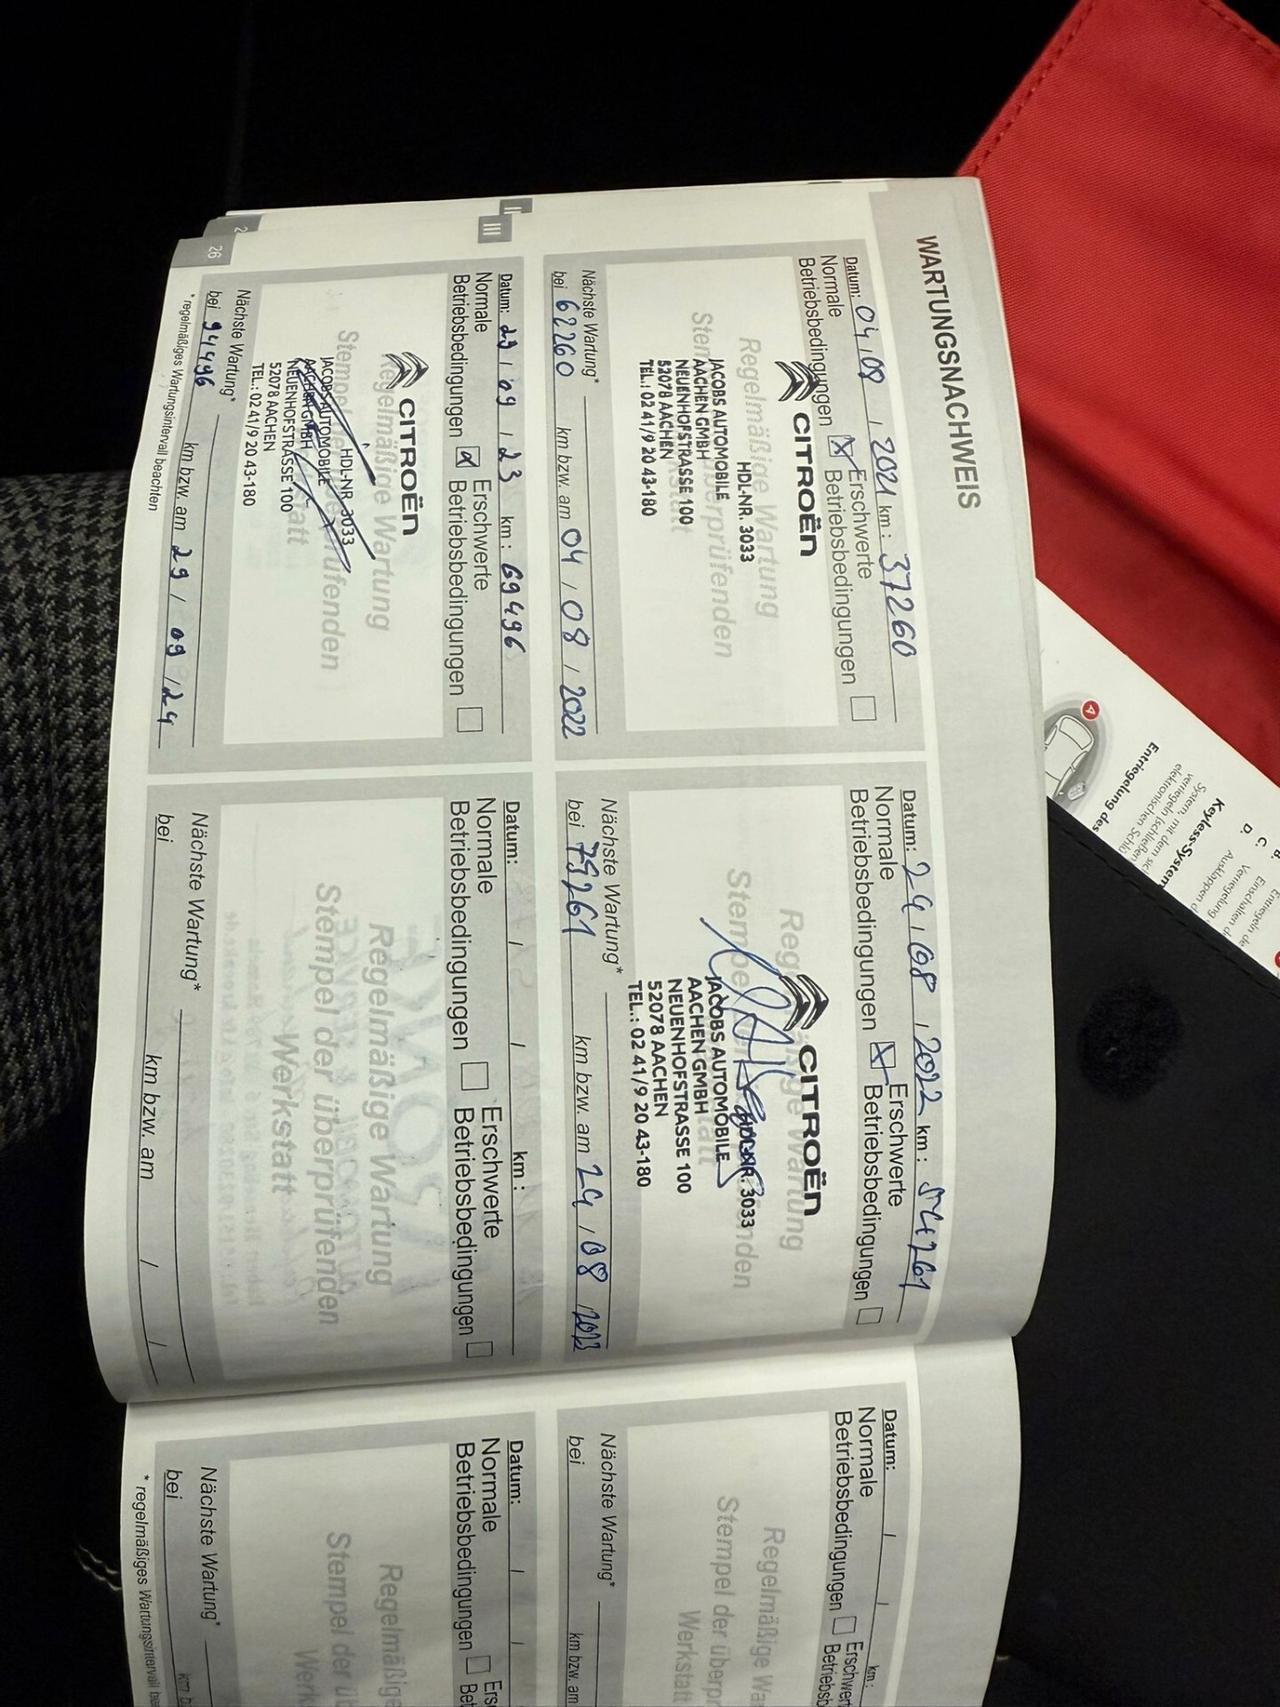 WARTUNGSNACHWEIS
Datum: 04 / 08 / 2021 km: 37260
Normale Betriebsbedingungen ☒ Erschwerte Betriebsbedingungen ☐
Regelmäßige Wartung
CITROËN
HDL-NR. 3033
JACOBS AUTOMOBILE
AACHEN GMBH
NEUENHOFSTRASSE 100
52078 AACHEN
TEL.: 02 41/9 20 43-180
Nächste Wartung*
bei 67260 km bzw. am 04 / 08 / 2022
Datum: 24 / 08 / 2022 km:
Normale Betriebsbedingungen ☒ Erschwerte Betriebsbedingungen ☐
CITROËN
HDL-NR. 3033
JACOBS AUTOMOBILE
AACHEN GMBH
NEUENHOFSTRASSE 100
52078 AACHEN
TEL.: 02 41/9 20 43-180
Nächste Wartung*
bei 79261 km bzw. am 24 / 08 / 2023
Datum: 29 / 09 / 23 km: 69496
Normale Betriebsbedingungen ☒ Erschwerte Betriebsbedingungen ☐
Regelmäßige Wartung
CITROËN
HDL-NR. 3033
JACOBS AUTOMOBILE
AACHEN GMBH
NEUENHOFSTRASSE 100
52078 AACHEN
TEL.: 02 41/9 20 43-180
Nächste Wartung*
bei 94496 km bzw. am 29 / 09 / 24
* regelmäßiges Wartungsintervall beachten
26
II
III
Datum: / / km:
Normale Betriebsbedingungen ☐ Erschwerte Betriebsbedingungen ☐
Regelmäßige Wartung
Stempel der überprüfenden
Werkstatt
Nächste Wartung*
bei km bzw. am / /
Datum: / / km:
Normale Betriebsbedingungen ☐
Regelmäßige
Stempel der
Werkstatt
Nächste Wartung*
bei km bzw. am
Datum: / /
Normale Betriebsbedingungen ☐
Regelmäßige
Stempel der
Nächste Wartung*
bei
* regelmäßiges Wartungsintervall
4
Entriegelung des
Keyless-System
System, mit dem
elektronischen
C.
D.
Verriegelung